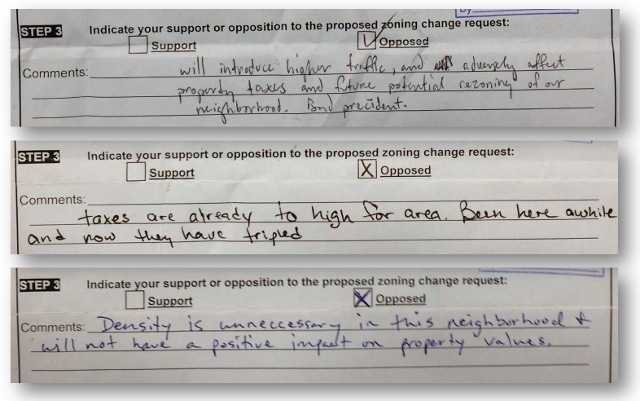 STEP 3 Indicate your support or opposition to the proposed zoning change request:
Support Opposed
Comments: will introduce higher traffic, and adversely affect
property taxes and future potential rezoning of our
neighborhood. Bad precident.
STEP 3 Indicate your support or opposition to the proposed zoning change request:
Support X Opposed
Comments:
taxes are already to high for area. Been here awhile
and now they have tripled
STEP 3 Indicate your support or opposition to the proposed zoning change request:
Support X Opposed
Comments: Density is unneccessary in this neighborhood &
will not have a positive impact on property values.